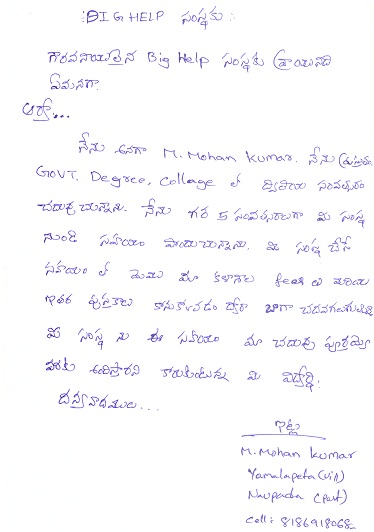 BIG HELP సంస్థకు:
గౌరవనీయులైన Big Help సంస్థకు వ్రాయునది
ఏమనగా.
ఆర్యా...
నేను అనగా M. Mohan Kumar. నేను ప్రస్తుతం
GOVT. Degree, Collage లో ద్వితీయ సంవత్సరం
చదువుచున్నాను. నేను గత 5 సంవత్సరాలుగా మీ సంస్థ
నుండి సహాయం పొందుచున్నాను. మీ సంస్థ చేసే
సహాయం లో మేము మా కళాశాల fees లు మరియు
ఇతర పుస్తకాలు కొనుకోవడం ద్వారా బాగా
మీ సంస్థ ను ఈ సహాయం మా చదువు
వరకు అందిస్తారని కోరుకుంటున్న మీ విద్యార్థి.
ధన్యవాదములు...
ఇట్లు
M. Mohan Kumar
Yamalapeta (vill)
Naupada (post)
Call: 8186918068